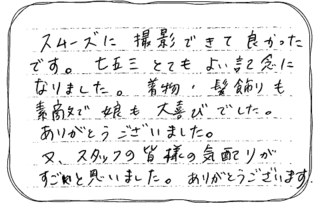 スムーズに 撮影できて良かった
です。七五三とてもよい記念に
なりました。着物・髪飾りも
素敵で娘も大喜びでした。
ありがとうございました。
又、スタッフの皆様の気配りが
すごいと思いました。ありがとうございます。